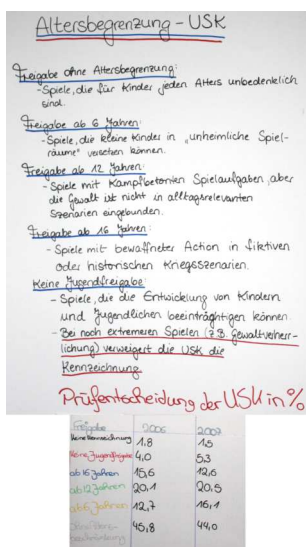 Altersbegrenzung - USK
Freigabe ohne Altersbegrenzung:
- Spiele, die für Kinder jeden Alters unbedenklich
sind.
Freigabe ab 6 Jahren:
- Spiele, die kleine Kinder in „unheimliche Spiel-
räume" versetzen können.
Freigabe ab 12 Jahren:
- Spiele mit Kampfbetonten Spielaufgaben, aber
die Gewalt ist nicht in alltagsrelevanten
Szenarien eingebunden.
Freigabe ab 16 Jahren:
- Spiele mit bewaffneter Action in fiktiven
oder historischen Kriegsszenarien.
Keine Jugendfreigabe
- Spiele, die die Entwicklung von Kindern
und Jugendlichen beeinträchtigen können.
- Bei noch extremeren Spielen (z.B. Gewaltverherr-
lichung) verweigert die USK die
Kennzeichnung.
Prüfentscheidung der USK in %
Freigabe 2006 2007
Keine Kennzeichnung 1,8 1,5
Keine Jugendfreigabe 4,0 5,3
ab 16 Jahren 15,6 12,6
ab 12 Jahren 20,1 20,5
ab 6 Jahren 12,7 16,1
45,8 44,0